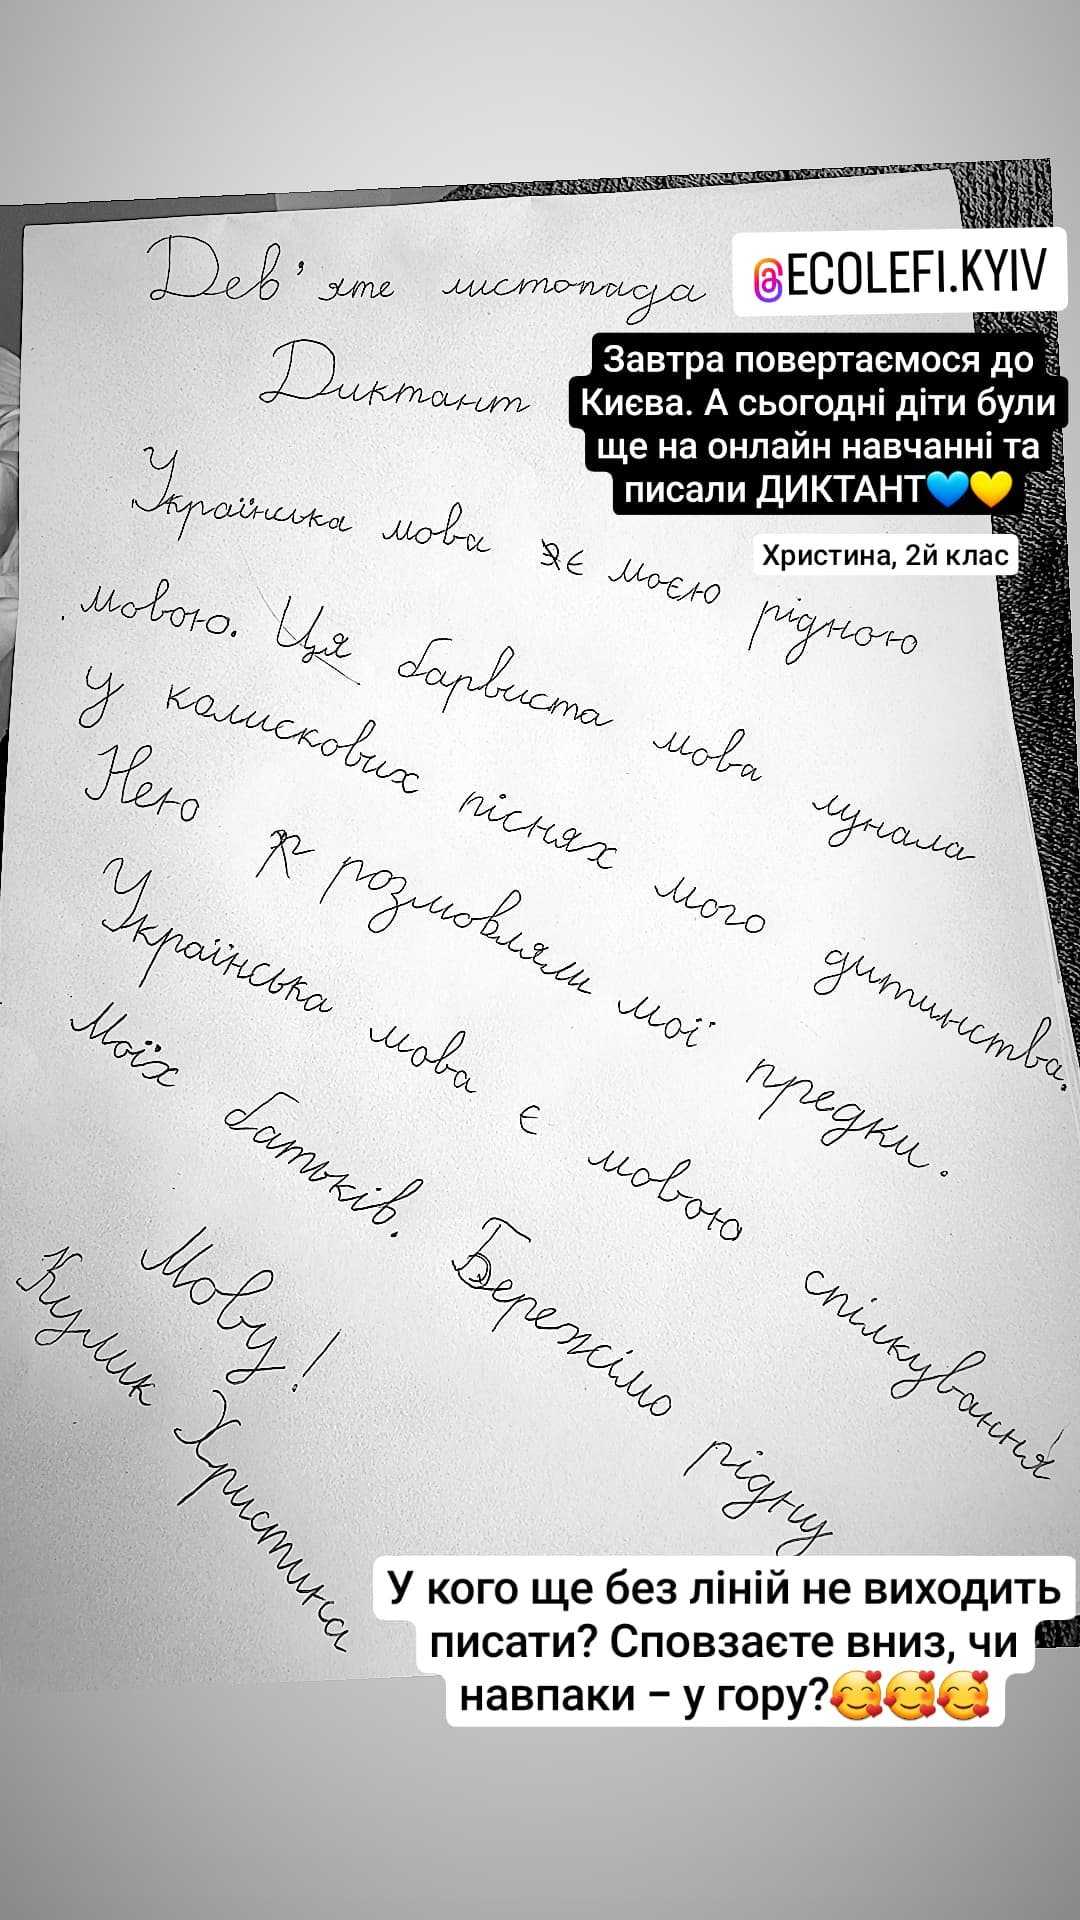 Дев'яте листопада
@ECOLEFI.KYIV
Диктант
Завтра повертаємося до
Києва. А сьогодні діти були
ще на онлайн навчанні та
писали ДИКТАНТ💙💛
Христина, 2й клас
Українська мова є моєю рідною
мовою. Ця барвиста мова лунала
у колискових піснях мого дитинства.
Нею розмовляли мої предки.
Українська мова є мовою спілкування
Моїх батьків. Бережімо рідну
Мову!
Кулик Христина
У кого ще без ліній не виходить
писати? Сповзаєте вниз, чи
навпаки – у гору?🥰🥰🥰